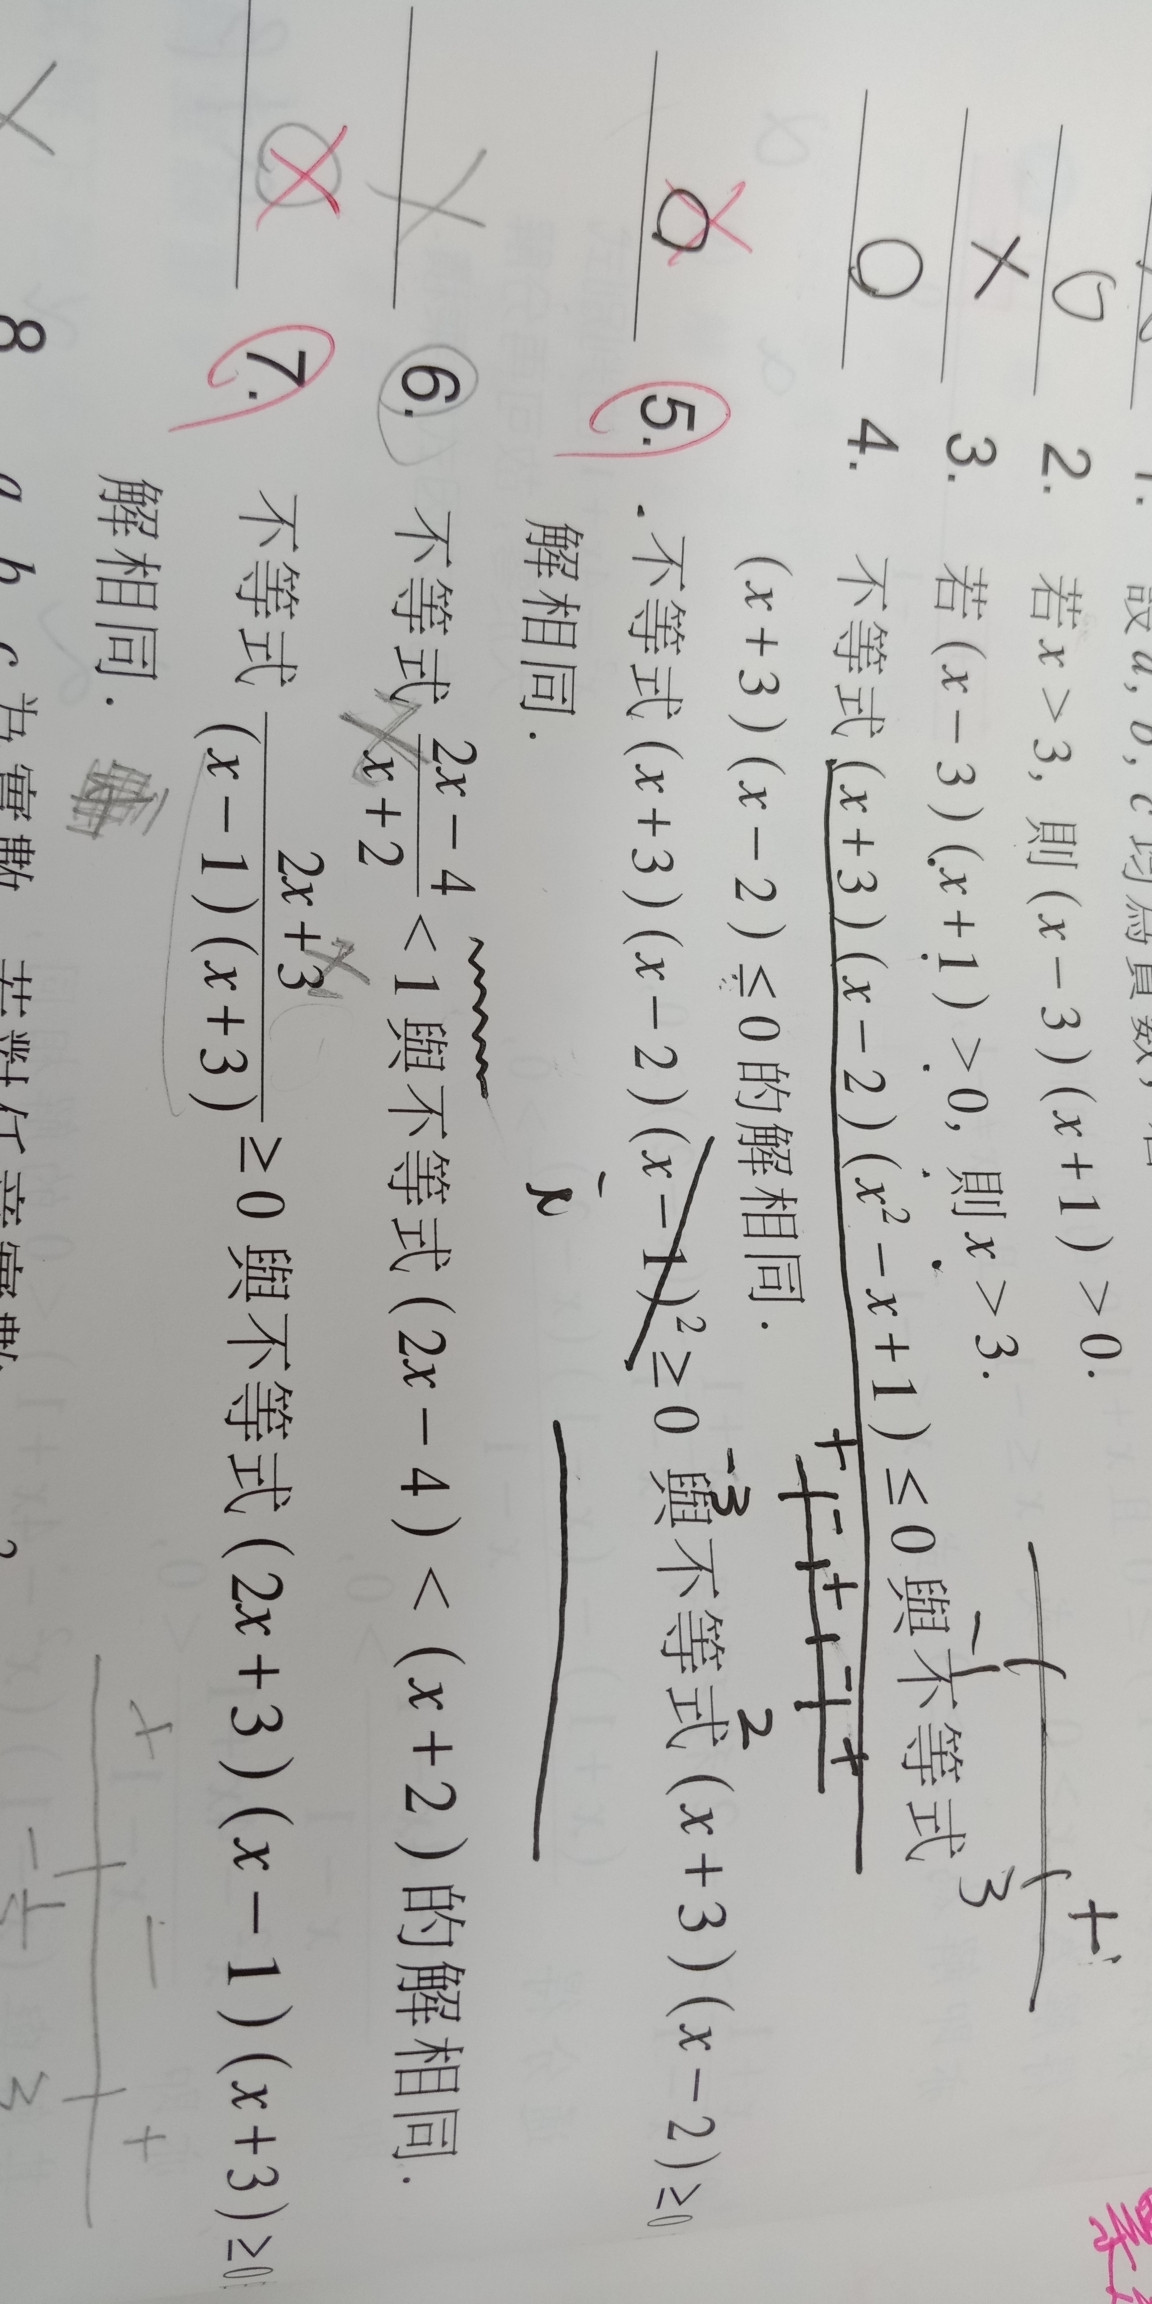 1. 設a, b, c均為實數，若
0 2. 若x>3, 則(x-3)(x+1)>0.
× 3. 若(x-3)(x+1)>0, 則x>3.
0 4. 不等式(x+3)(x-2)(x²-x+1)≤0與不等式
(x+3)(x-2)≤0的解相同.
0 × 5. 不等式(x+3)(x-2)(x-1)²≥0與不等式(x+3)(x-2)≥0
解相同.
× 6. 不等式 2x-4/x+2 <1與不等式(2x-4)<(x+2)的解相同.
0 × 7. 不等式 2x+3/(x-1)(x+3) ≥0與不等式(2x+3)(x-1)(x+3)≥0
解相同.
× 8 a b c為實數 若對任意實數
-1 3 +
+ - + - + +
-3 2
+ - +